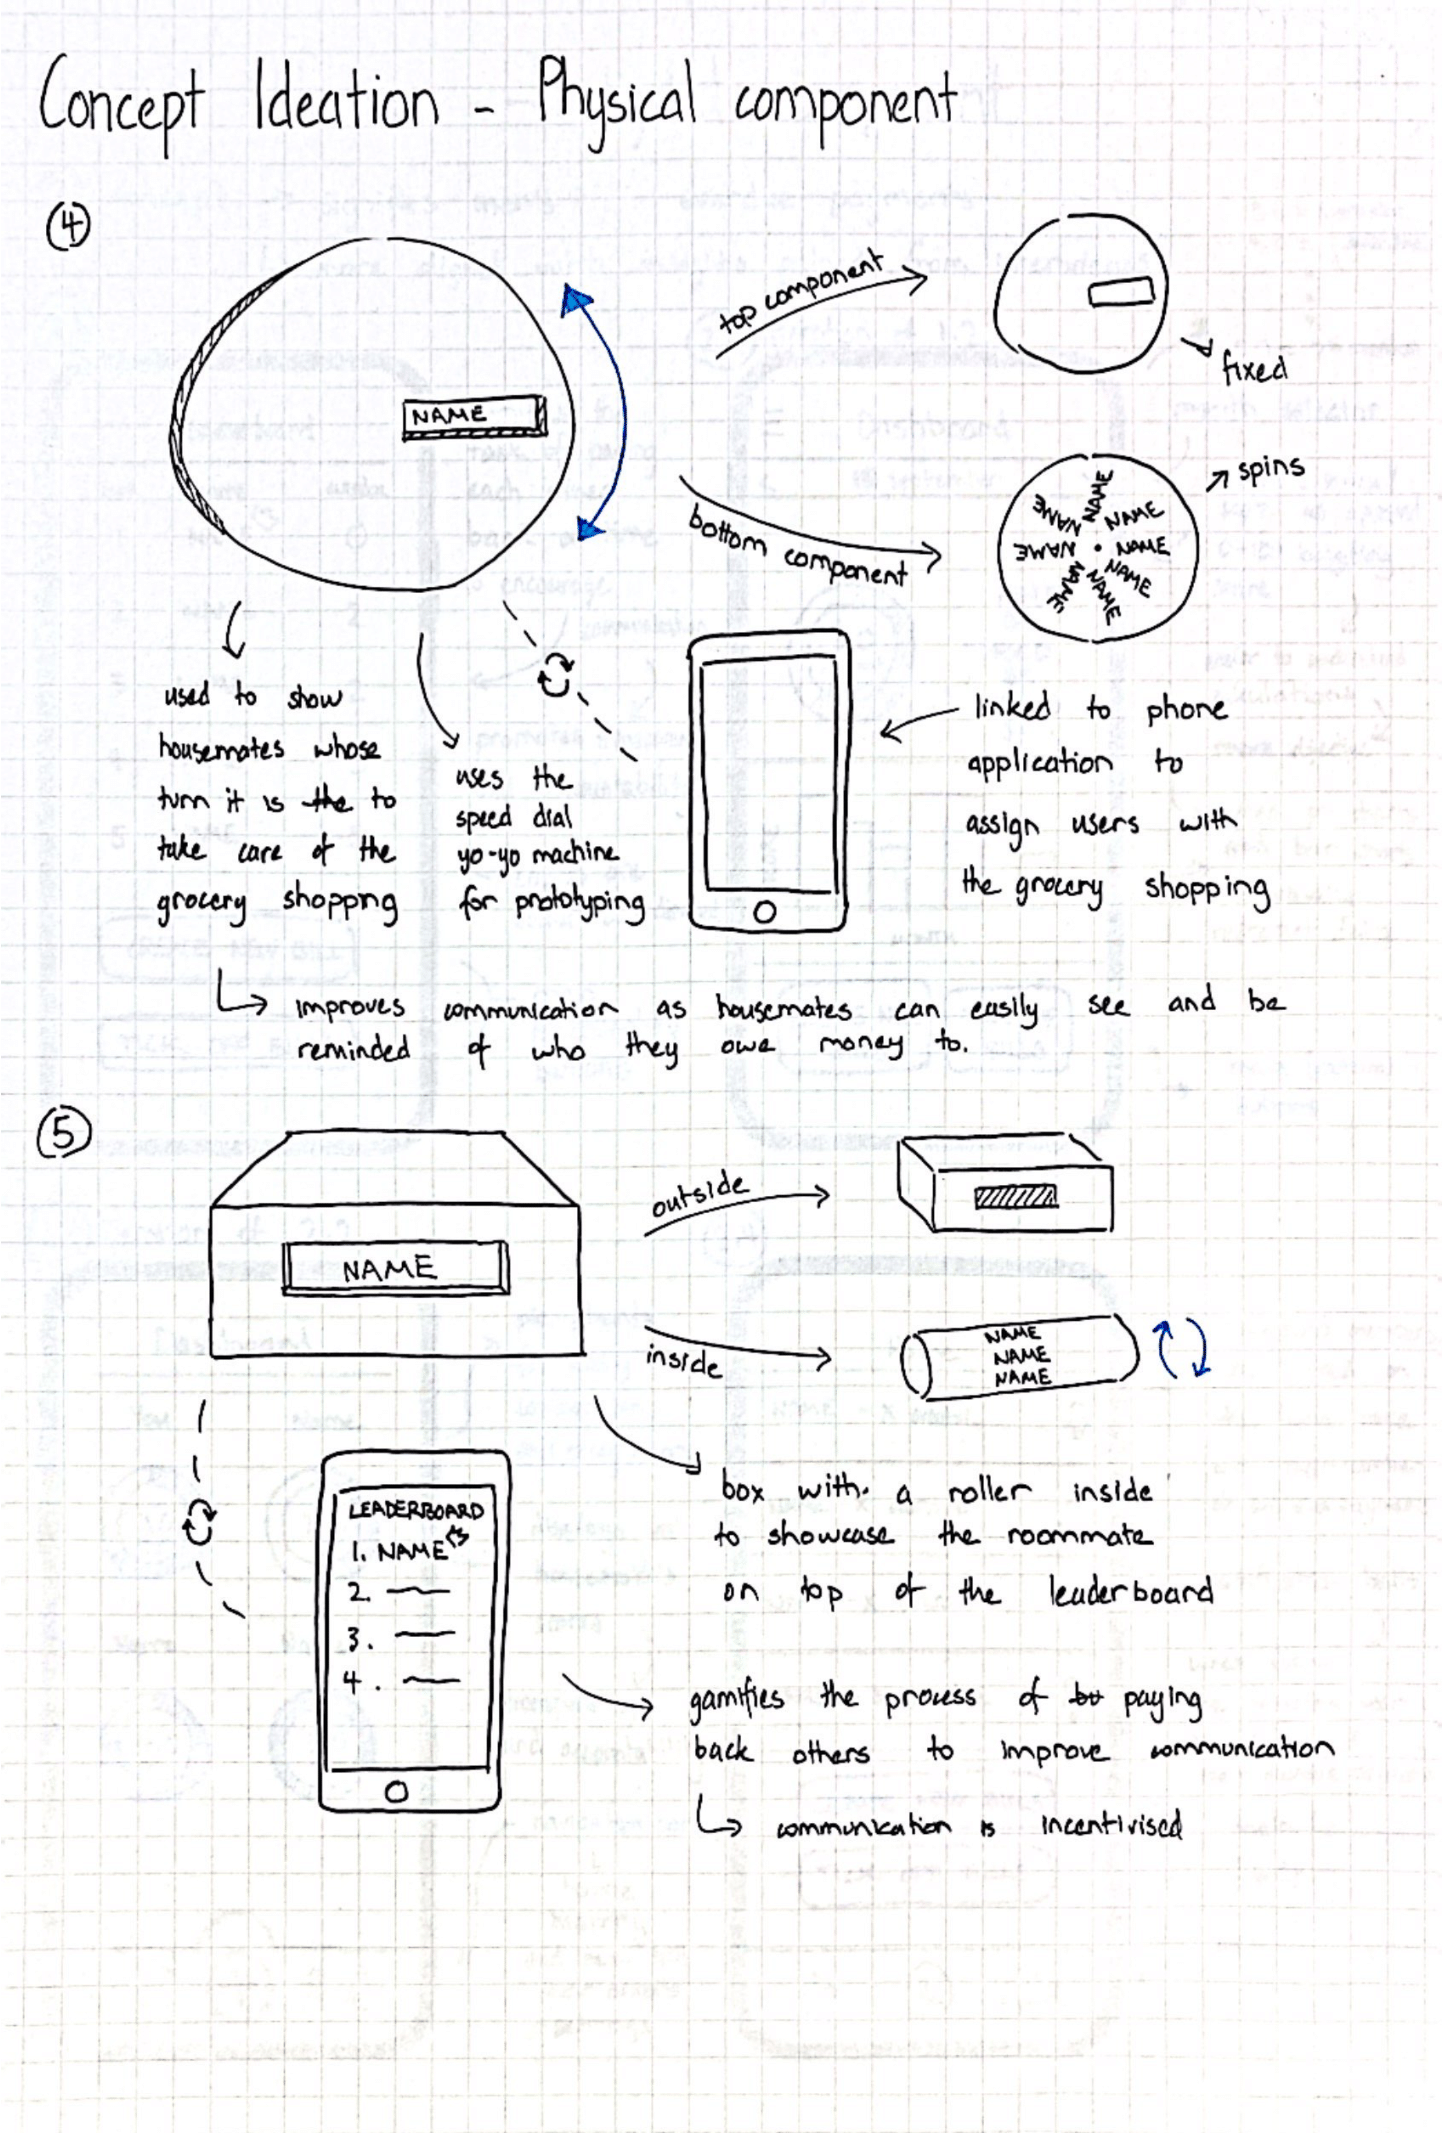 Concept Ideation - Physical component
4
NAME
top component
fixed
bottom component
spins
NAME
NAME
NAME
NAME
NAME
NAME
NAME
NAME
used to show
housemates whose
turn it is the to
take care of the
grocery shopping
uses the
speed dial
yo-yo machine
for prototyping
linked to phone
application to
assign users with
the grocery shopping
improves communication as housemates can easily see and be
reminded of who they owe money to.
5
NAME
outside
inside
NAME
NAME
NAME
LEADERBOARD
1. NAME
2.
3.
4.
box with a roller inside
to showcase the roommate
on top of the leaderboard
gamifies the process of paying
back others to improve communication
communication is incentivised